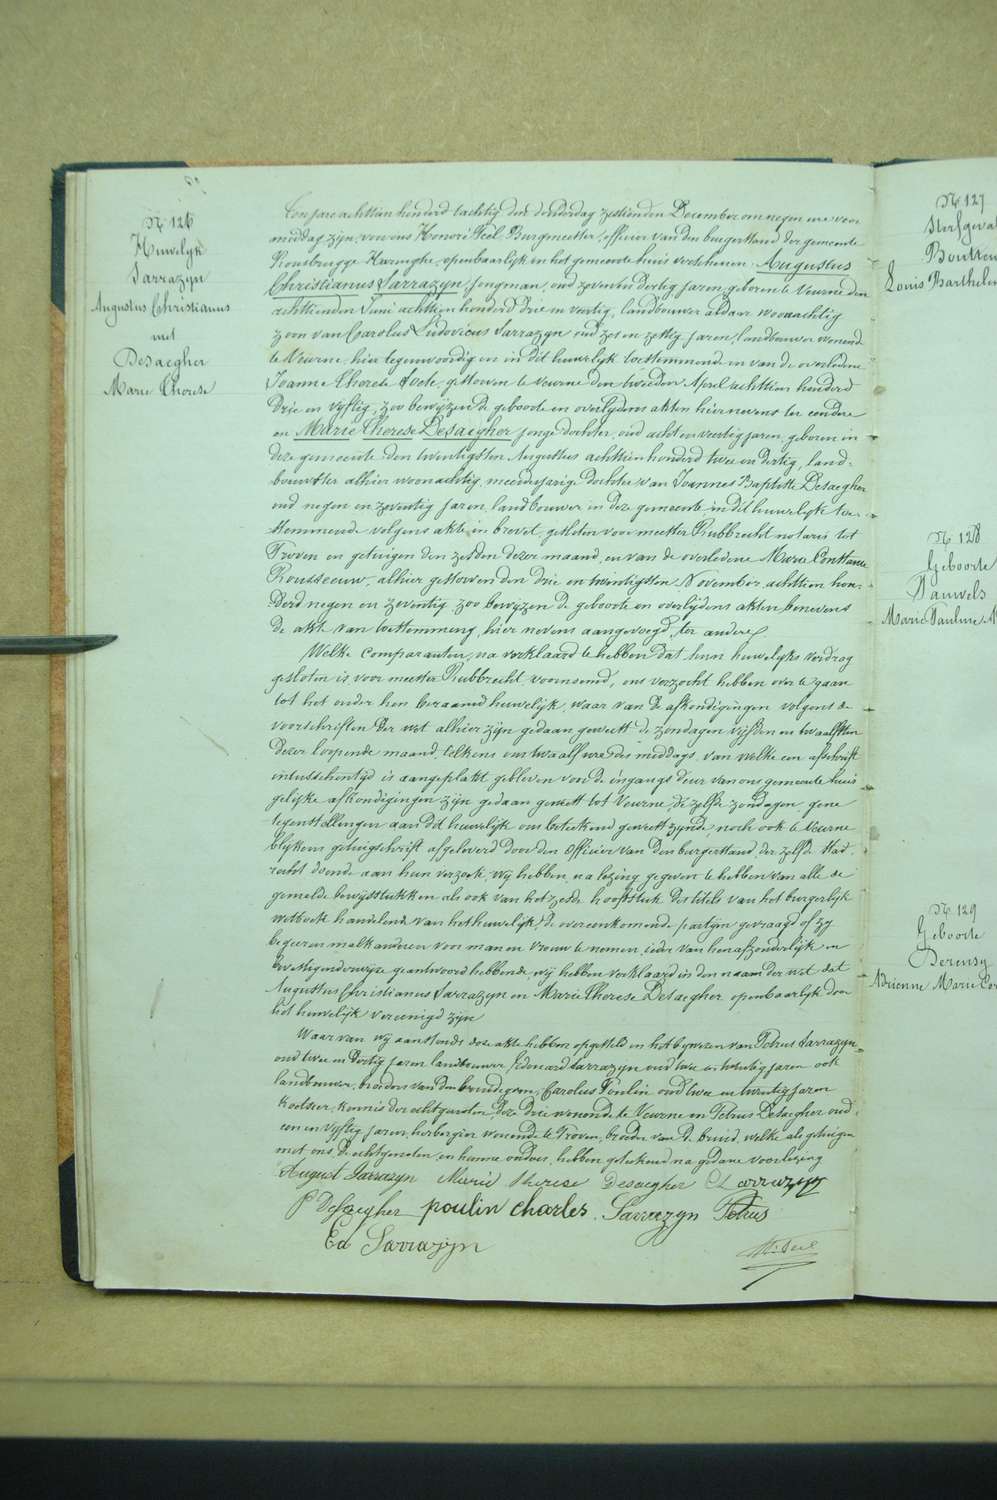 N. 126
Huwelijk
Sarrazyn
Augustus Christianus
met
Desaegher
Marie Therese
Ten jare achttien honderd tachtig den donderdag zestienden December om negen ure voor
middag zijn, voor ons Honoré Feel Burgmeester, officier van den burgerstand der gemeente
Rousbrugge Haringhe, openbaarlijk in het gemeente huis verschenen. Augustus
Christianus Sarrazyn, jongman, oud zeven en dertig jaren, geboren te Veurne den
achttienden Juni achttien honderd drie en veertig, landbouwer aldaar woonachtig
zoon van Carolus Ludovicus Sarrazyn oud zes en zestig jaren, landbouwer wonend
te Veurne, hier tegenwoordig en in dit huwelijk toestemmende en van de overledene
Joanna Therese, gestorven te Veurne den tweeden April achttien honderd
drie en vijftig, zoo bewijzen de geboorte en overlijdens akten hiernevens ter eendere
en Marie Therese Desaegher jonge dochter, oud acht en veertig jaren, geboren in
deze gemeente den twintigsten Augustus achttien honderd twee en dertig, land-
bouwster alhier woonachtig, meerderjarige dochter van Joannes Baptiste Desaegher
oud negen en zeventig jaren, landbouwer in deze gemeente, in dit huwelijk toe-
stemmende volgens akte in brevet, gesloten voor meester Rubbrecht notaris tot
Proven en getuigen den zesden dezer maand, en van de overledene Marie Constance
Rousseeuw, alhier gestorven den drie en twintigsten November achttien hon-
derd negen en zeventig zoo bewijzen de geboorte en overlijdens akten benevens
de akt van toestemming, hier nevens aangevoegd, ter andere.
Welke comparanten, na verklaard te hebben dat hun huwelijks verdrag
gesloten is voor meester Rubbrecht voornoemd, ons verzocht hebben over te gaan
tot het onder hen beraamd huwelijk, waar van de afkondigingen volgens de
voorschriften der wet alhier zijn gedaan geweest de zondagen vijfden en twaalfsten
dezer loopende maand, telkens om twaalf ure des middags, van welke een afschrift
intusschentijd is aangeplakt gebleven voor de ingangs deur van ons gemeente huis
gelijke afkondigingen zijn gedaan geweest tot Veurne, de zelfde zondagen, gene
tegenstellingen aan dit huwelijk ons beteekend geweest zijnde, noch ook te Veurne
blijkens getuigschrift afgeleverd door den officier van den burgerstand der zelfde stad.
recht doende aan hun verzoek, wij hebben, na lezing gegeven te hebben van alle de
gemelde bewijsstukken als ook van het zesde hoofdstuk des titels van het burgerlijk
wetboek handelende van het huwelijk, de overeenkomende partijen gevraagd of zij
begeeren malkanderen voor man en vrouw te nemen, ieder van hen afzonderlijk en
bevestigenderwijze geantwoord hebbende, wij hebben verklaard in den naam der wet dat
Augustus Christianus Sarrazyn en Marie Therese Desaegher openbaarlijk door
het huwelijk vereenigd zijn
Waar van wij aanstonds deze akte hebben opgesteld in het bijwezen van Petrus Sarrazyn
oud twee en dertig jaren landbouwer, Edouard Sarrazyn oud twee en twintig jaren ook
landbouwer, broeders van den bruidegom, Carolus Poulin oud twee en twintig jaren
koetsier, kennis der echtgenoten, deze drie wonende te Veurne en Petrus Desaegher oud
een en vijftig jaren, herbergier wonende te Proven, broeder van de bruid, welke als getuigen
met ons, de echtgenoten, en hunne ouders, hebben geteekend na gedane voorlezing
August Sarrazyn Marie Therese Desaegher CL Sarrazyn
P Desaegher poulin charles. Sarrazyn Petrus
Ed Sarrazyn
N. 127
Sterfgeval
Louis Barthelem
N. 128
Geboorte
Pauwels
Marie Pauline
N. 129
Geboorte
Adrienne Marie